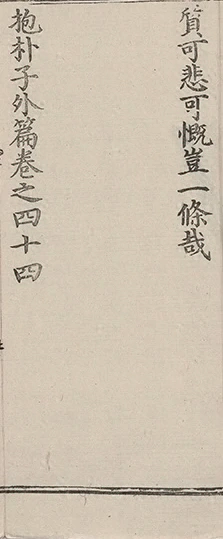 質可悲可慨豈一條哉
抱朴子外篇卷之四十四